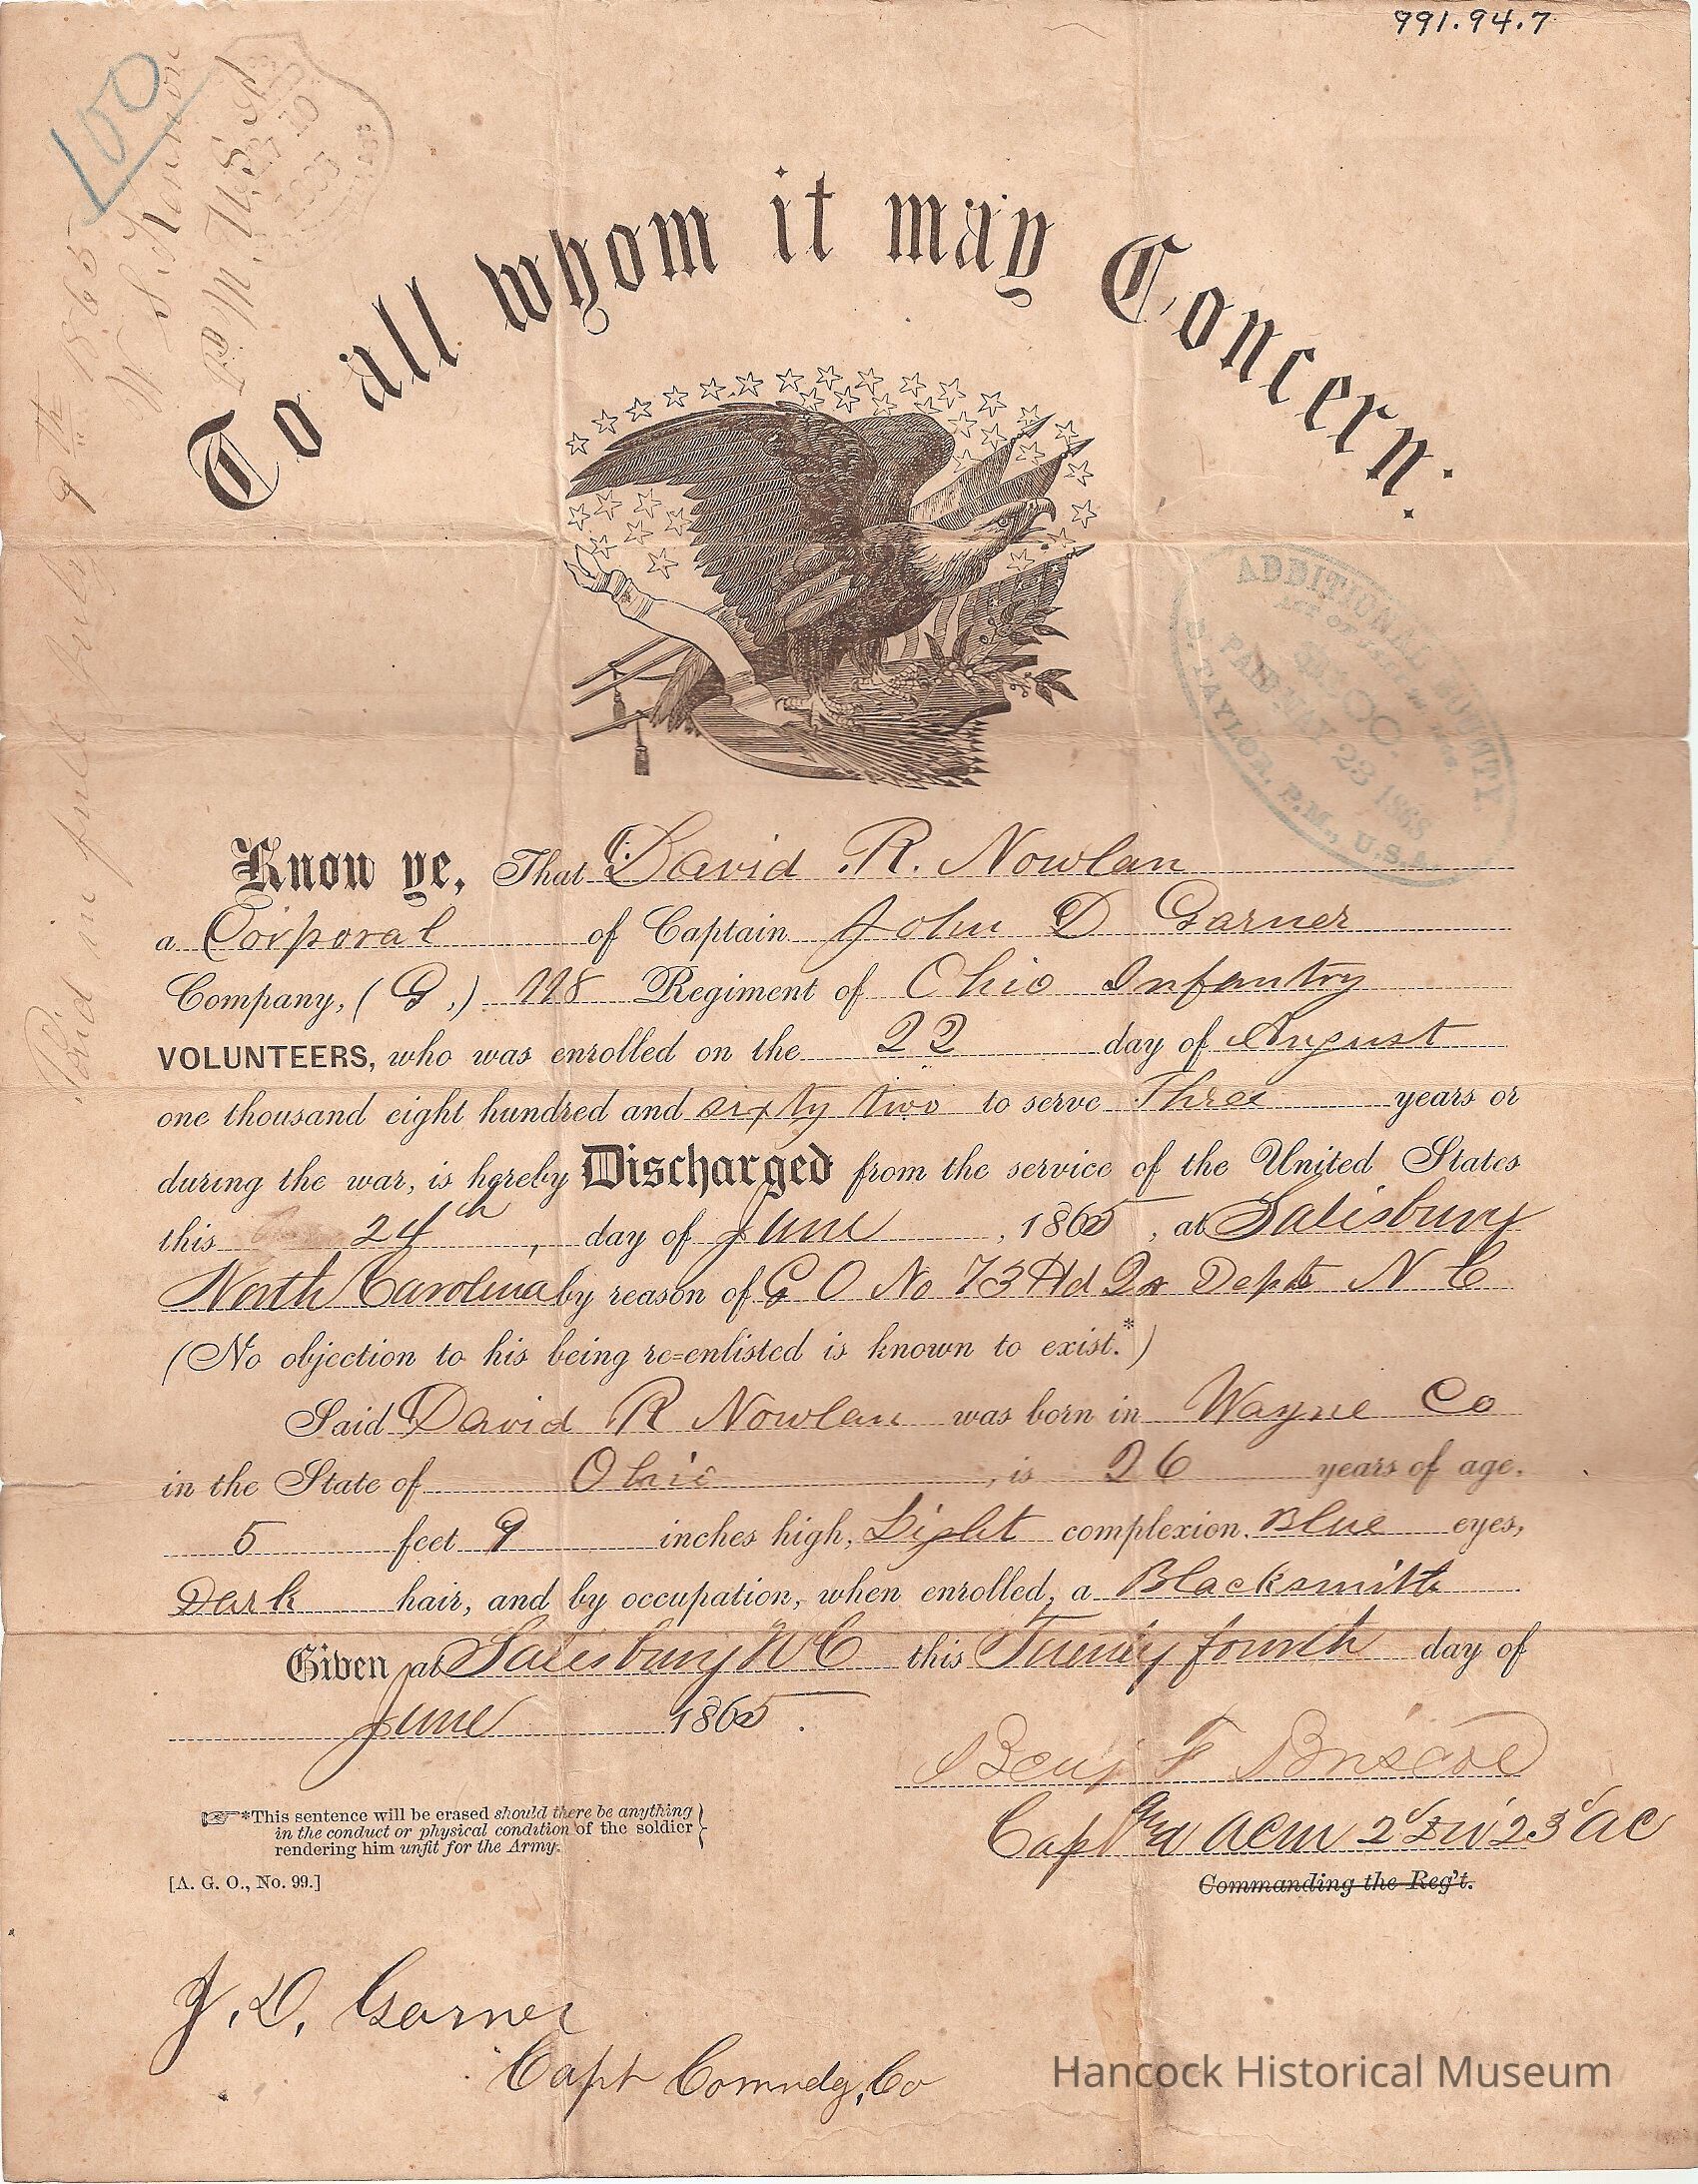 991.94.7
100
Paid in full July 9th 1865
W. S.
P M. U.S.A
To all whom it may Concern:
ADDITIONAL BOUNTY,
ACT OF
$100.
PAID MAY 23 186
TAYLOR, P.M., U.S.A.
Know ye, That David R. Nowlan
a Corporal of Captain John D Garner
Company, (G,) 118 Regiment of Ohio Infantry
VOLUNTEERS, who was enrolled on the 22 day of August
one thousand eight hundred and sixty two to serve Three years or
during the war, is hereby Discharged from the service of the United States
this 24th, day of June, 1865, at Salisbury
North Carolina by reason of G O No 73 Hd Qr Dept N C
(No objection to his being re=enlisted is known to exist.*)
Said David R Nowlan was born in Wayne Co
in the State of Ohio, is 26 years of age,
5 feet 9 inches high, Light complexion, Blue eyes,
Dark hair, and by occupation, when enrolled, a Blacksmith
Given at Salisbury N C this Twenty fourth day of
June 1865.
Benj F Briscoe
Capt ACM 2d Div 23d AC
Commanding the Reg't.
*This sentence will be erased should there be anything
in the conduct or physical condition of the soldier
rendering him unfit for the Army.
[A. G. O., No. 99.]
J. D. Garner
Capt Comndg, Co
Hancock Historical Museum